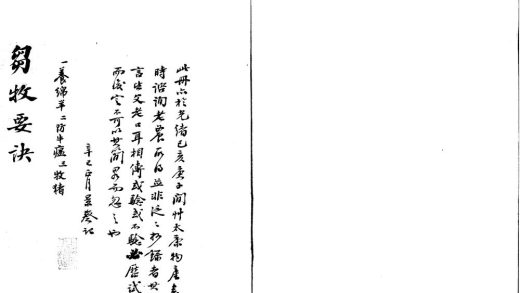 此冊亦於光緒己亥庚子間艸太康物產表
時諮詢老農所得並非泛泛抄錄者其
言出父老口耳相傳或驗或不驗必歷試
而後定不可以其簡易而忽之也
辛巳月記
一養綿羊二防牛瘟三牧豬
芻牧要訣